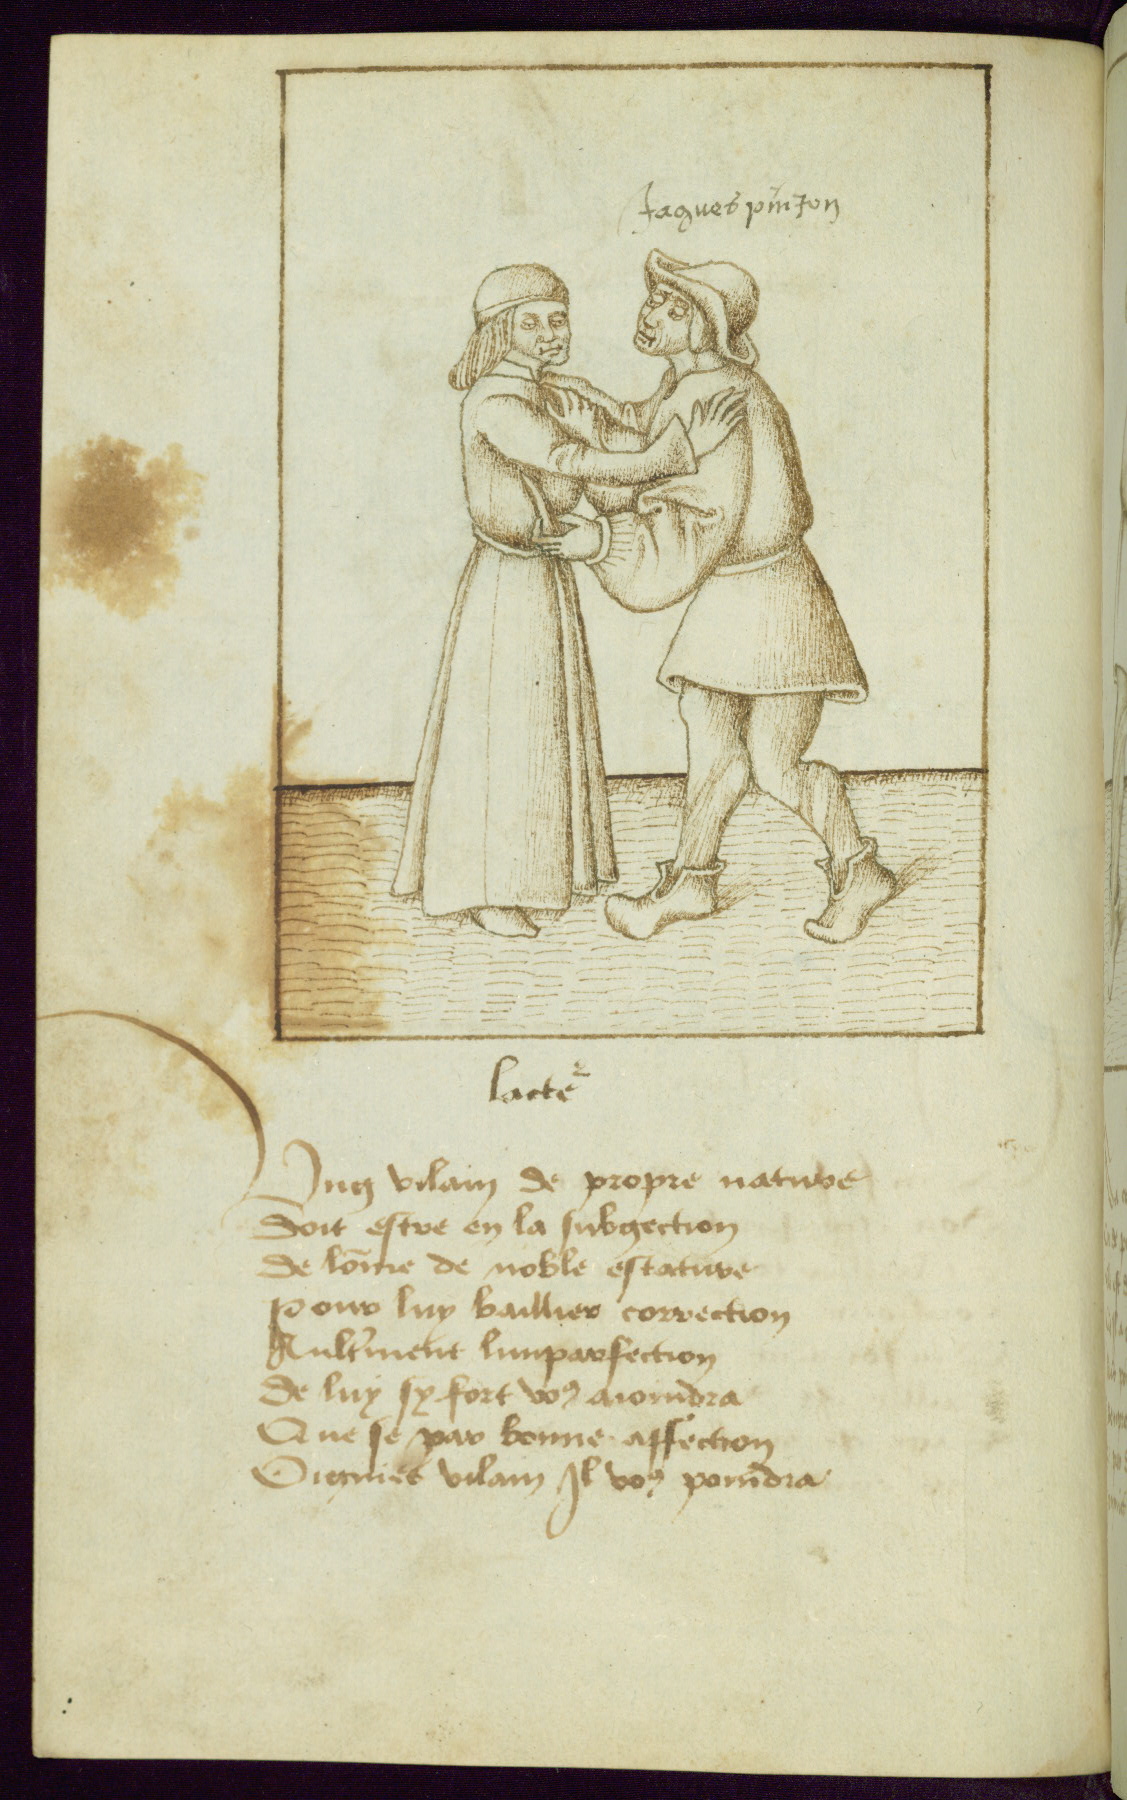 Jaques pinson
lacteᷣ
Ung vilain de propre nature
Doit estre en la subgection
De lōme de noble estature
Pour luy baillier correction
Ault'ment limparfection
De luy sy fort voꝰ aioindra
Que se par bonne affection
Oignies vilain Il voꝰ poindra